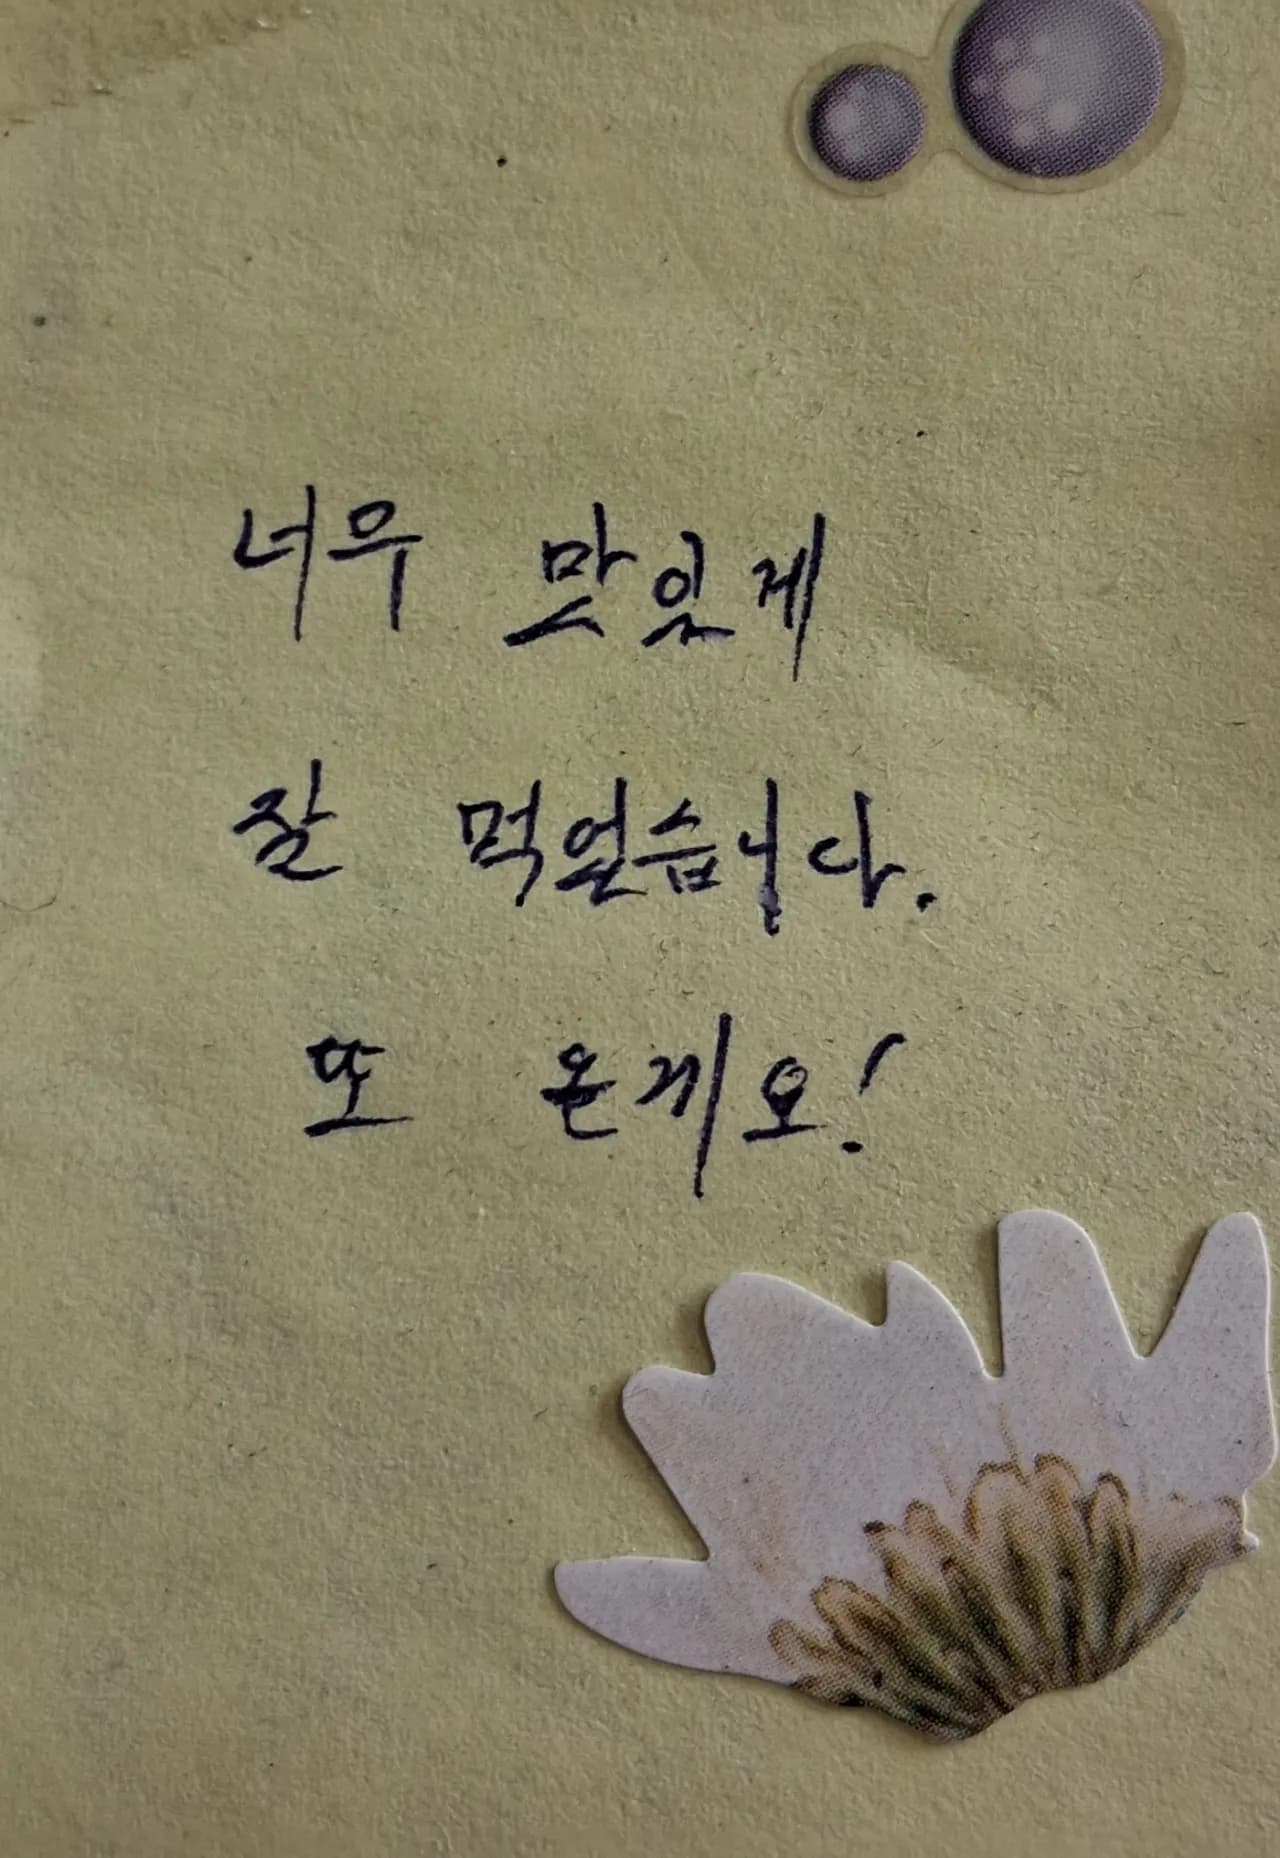 너무 맛있게
잘 먹었습니다.
또 올게요!